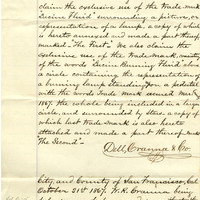 claim the exclusive use of the trade-mark
"Lucine Fluid" surrounding a picture, or
representation of a lamp, a copy of which
is hereto annexed and made a part thereof
marked "The First". We also claim the
exclusive use of the trade-mark
of the words "Lucine Burning Fluid" along
a circle containing the representation of
a burning lamp standing on a pedestal
with the words Trade Mark
1867. the whole being included in a large
circle, and surrounded by Stars. a copy of
which last trade-mark is also hereto
attached and made a part thereof
"The Second".
& Co.
City, and County of San Francisco, Cal
October 31st 1867. W. R. being